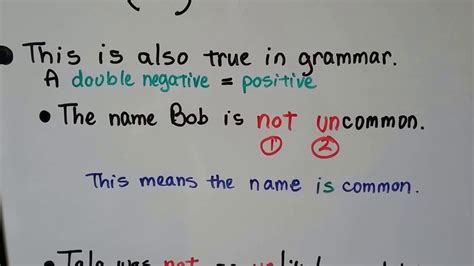 • This is also true in grammar.
A double negative = positive
• The name Bob is not uncommon.
① ②
This means the name is common.
• was not